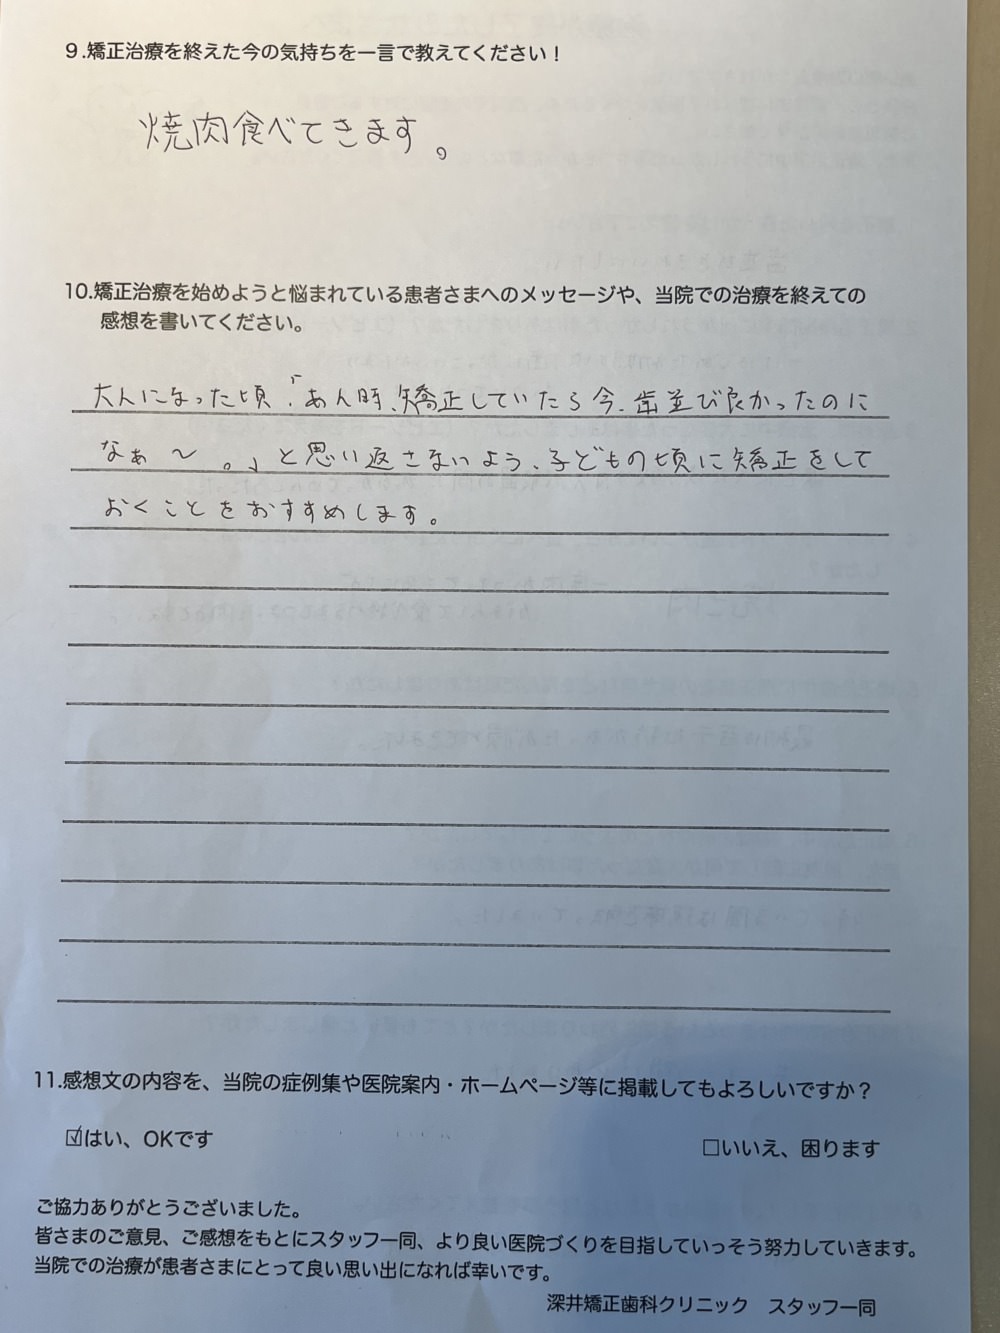 9.矯正治療を終えた今の気持ちを一言で教えてください！
焼肉食べてきます。
10.矯正治療を始めようと悩まれている患者さまへのメッセージや、当院での治療を終えての
感想を書いてください。
大人になった頃「あん時、矯正していたら今、歯並び良かったのに
なぁ〜。」と思い返さないよう、子どもの頃に矯正をして
おくことをおすすめします。
11.感想文の内容を、当院の症例集や医院案内・ホームページ等に掲載してもよろしいですか？
☑はい、OKです □いいえ、困ります
ご協力ありがとうございました。
皆さまのご意見、ご感想をもとにスタッフ一同、より良い医院づくりを目指していっそう努力していきます。
当院での治療が患者さまにとって良い思い出になれば幸いです。
深井矯正歯科クリニック　スタッフ一同